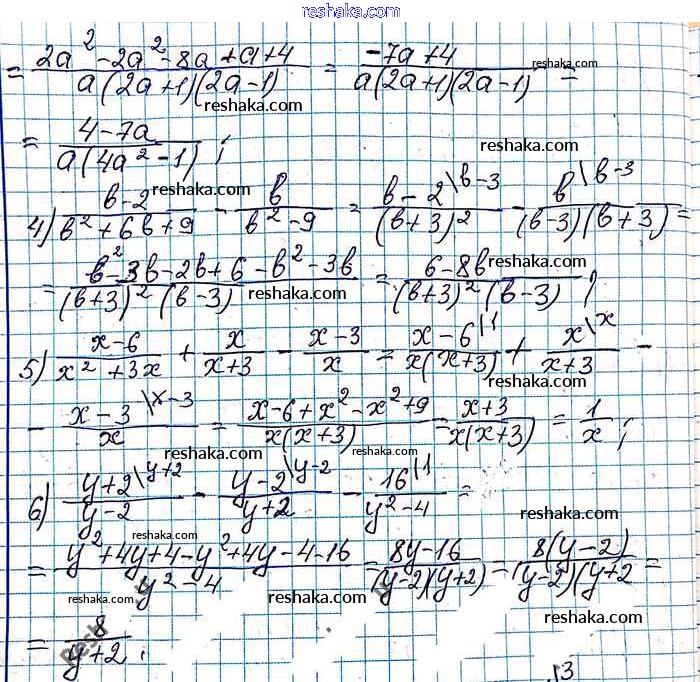 reshaka.com
= (2a² - 2a² - 8a + a + 4)/(a(2a+1)(2a-1)) = (-7a+4)/(a(2a+1)(2a-1)) =
reshaka.com
reshaka.com
= (4-7a)/(a(4a²-1)) ;
reshaka.com
reshaka.com
4) (в-2)/(в²+6в+9) - в/(в²-9) = (в-2\в-3)/((в+3)²) - (в\в-3)/((в-3)(в+3)) =
reshaka.com
= (в²-3в-2в+6-в²-3в)/((в+3)²(в-3)) = (6-8в)/((в+3)²(в-3)) ;
reshaka.com
reshaka.com
5) (x-6)/(x²+3x) + x/(x+3) - (x-3)/x = (x-6\1)/(x(x+3)) + (x\x)/(x+3) -
reshaka.com
- (x-3\x-3)/x = (x-6+x²-x²+9)/(x(x+3)) = (x+3)/(x(x+3)) = 1/x ;
reshaka.com
reshaka.com
6) (y+2\y+2)/(y-2) - (y-2\y-2)/(y+2) - (16\1)/(y²-4) =
reshaka.com
reshaka.com
= (y²+4y+4-y²+4y-4-16)/(y²-4) = (8y-16)/((y-2)(y+2)) = (8(y-2))/((y-2)(y+2 =
reshaka.com
reshaka.com
reshaka.com
= 8/(y+2) ;
Reshaka
13